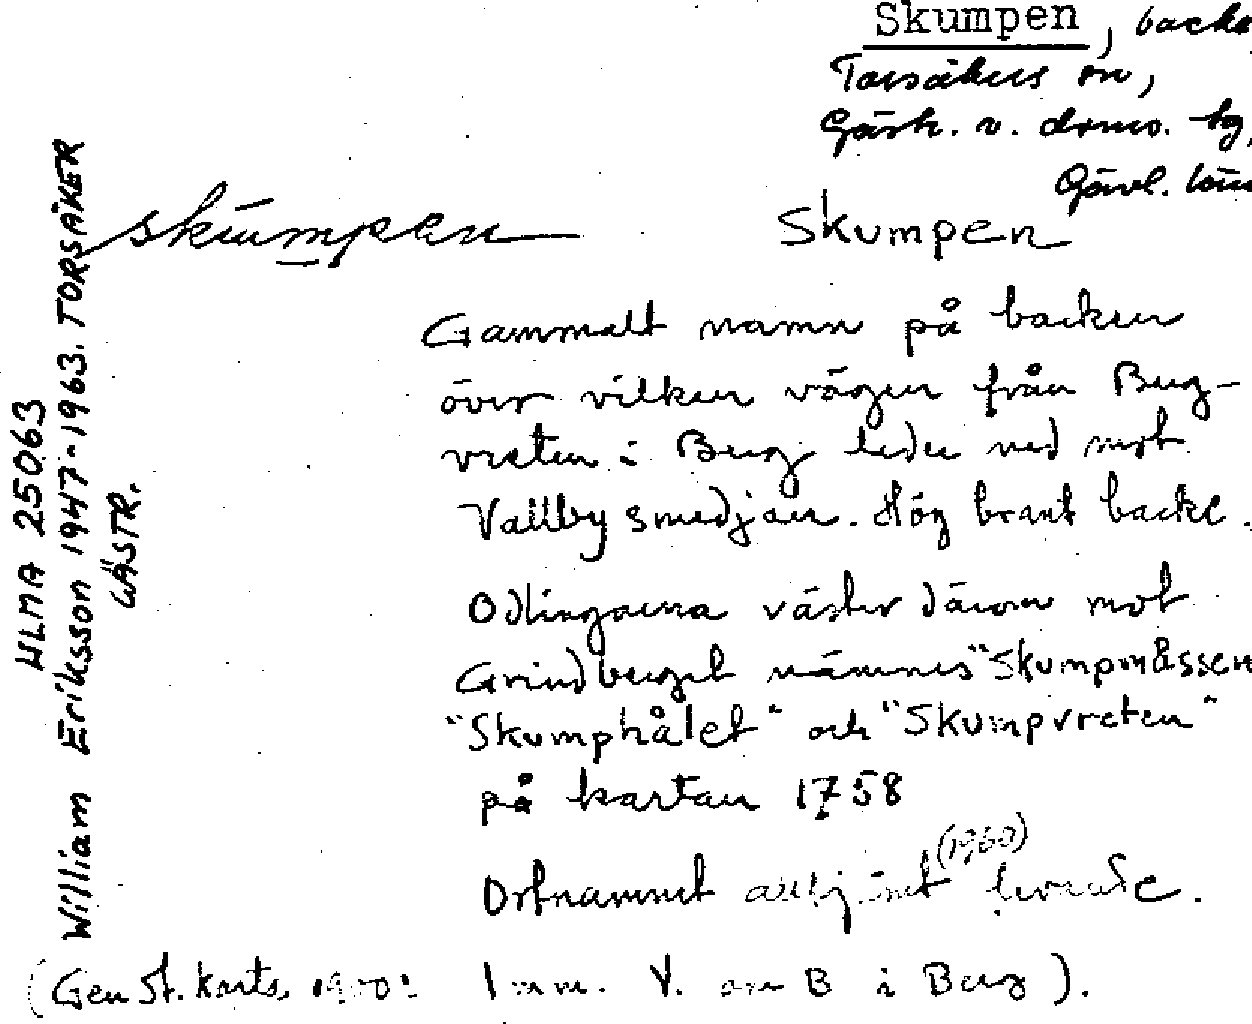 Skumpen, backe
Torsåkers sn,
Gästr. v. doms. tg,
Gävl. län
skumpen
Skumpen
Gammalt namn på backen
över vilken vägen från Berg-
vreten i Berg leder ned mot
Vallby smedjan. Hög brant backe.
Odlingarna väster därom mot
Grindberget nämnes "Skumpmåssen
"Skumphålet" och "Skumpvreten"
på kartan 1758
(1960)
Ortnamnet alltjämt levande.
(Gen St. Karta 1900: 1 mm. V. om B i Berg).
ULMA 25063
William Eriksson 1947-1963. TORSÅKER
GÄSTR.